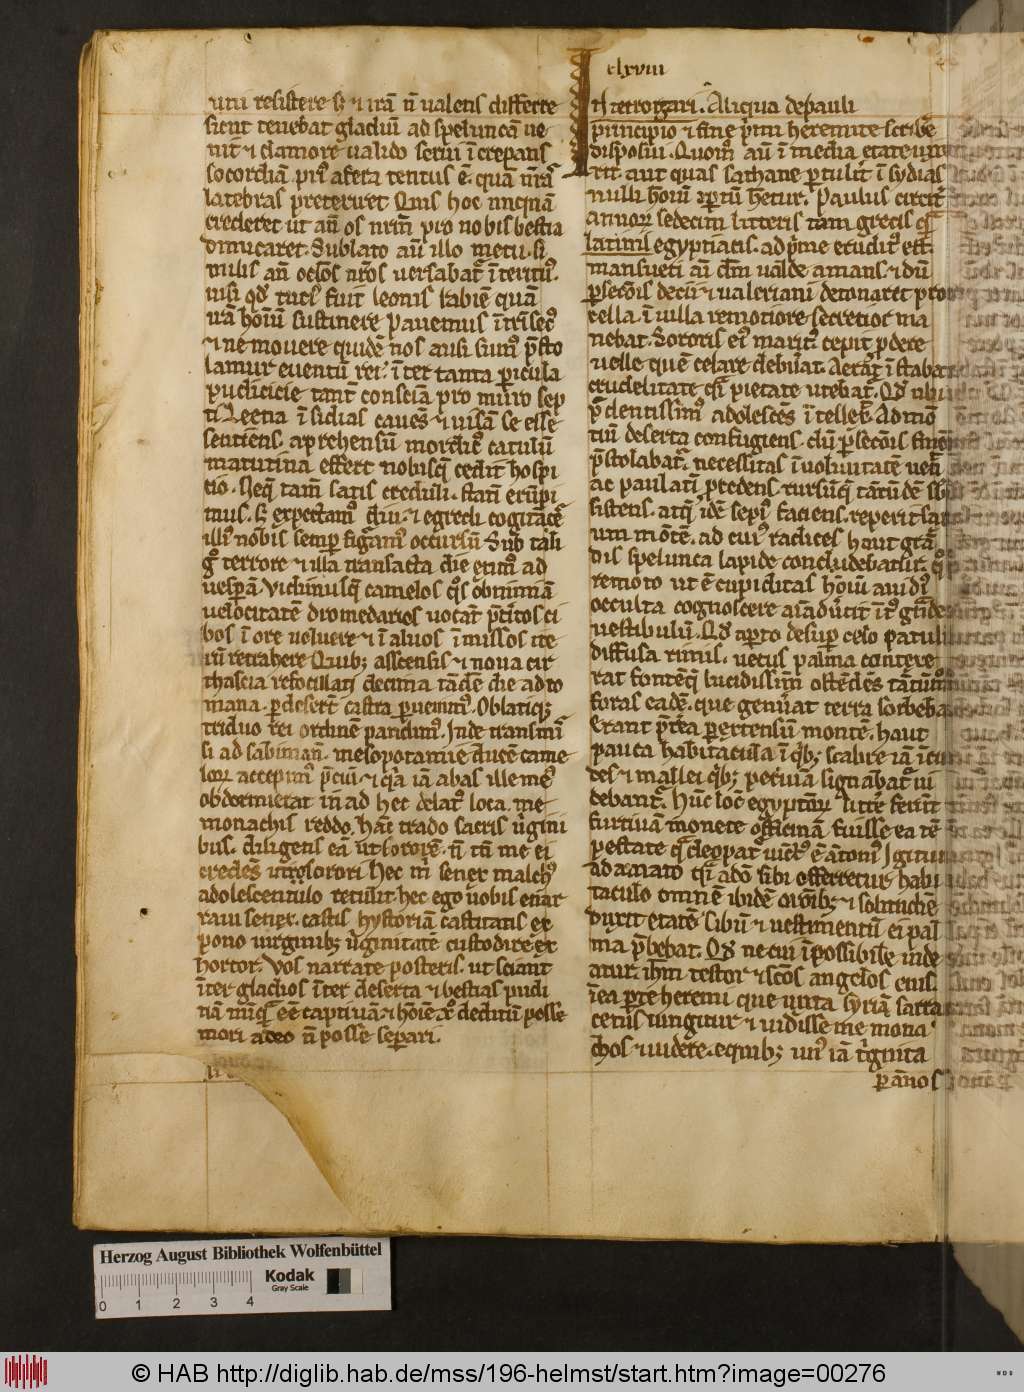 uim resistere sz ⁊ irā n̄ ualens differre
sicut tenebat gladiū ad speluncā ue
nit ⁊ clamore valido serui īcrepans
socordiā priꝰ a fera tentus ē quā nr̄a
latebras preteriret Quis hoc nnqnā
crederet ut an̄ os nr̄m pro nobis bestia
dimicaret. Sublato aū illo metu. si
milis an̄ oclos nr̄os uersabatr̄ īteritꝰ.
nisi qd̄ tutiꝰ fuit leonis rabiē quā
irā hoīuū sustinere Pauemus ītrīsecꝰ
⁊ ne mouere quidē nos ausi sumꝰ p̄sto
lamur euentū rei. īter tanta p̄icula
pudicicie tant̄ consciā pro muro sep
ti Leena īsidias caues̄ ⁊ uisā se esse
sentiens. aprehensū mordicꝰ catulū
matutina effert nobisq̄ cedit hospi
tio. Neq̄ tam̄ satis creduli. statī erūpi
mus. sz expectamꝰ diu. ⁊ egredi cogitātes
illiꝰ nobis semp̄ figamꝰ occursū Sub tali
g̊ terrore ⁊ illa transacta die eximꝰ ad
uesp̄am. Vidimusq̄ camelos qͦs ob nimiā
uelocitatē dromedarios uocāt p̄t̄itos ci
bos ī ore uoluere ⁊ ī aluos īmissos ite
rū retrahere Quibꝫ asscensis ⁊ noua cir
thascia refocillati decima tādē die ad ro
mana. p̄ desert̄ castra p̄uenimꝰ. Oblatiqꝫ
tribuo rei ordinē pandimꝰ. Inde transmis̄
si ad sabinian̄. mesopotamie ducē came
lorꝝ accepimꝰ p̄ciū ⁊ qͥa iā abas ille meꝰ
obdormierat in ad hec delatꝰ loca. me
monachis reddo. hāc trado sacris ūgini
bus. diligens eā ut sororē. n̄ tn̄ me ei
credēs ut sorori Hec m̄ senex malchꝰ
adolescentulo retulit. hec ego uobis enar
raui senex. castis hystoriā castitatis ex
pono uirginibꝫ ūginitatē custodire ex
hortor. Vos narrate posteris. ut sciant
īter gladios īter deserta ⁊ bestias pudi
citiā nūq̄ ēē captiuā ⁊ hoīem xp̄o deditū posse
mori adeo n̄ posse sep̄ari.
clxviii
Aliqua de pauli
principio ⁊ fine p̄mi heremite scribē
disposui. Quom̄ aū ī media etate
rit. aut quas sathane p̄tulit īsydias
nulli hoīuū
annorꝝ sedecim litteris tam grecis q̄
latinis egyptiacis. ad p̄me eruditꝰ est.
mansueti ai dm̄ valde amans. ⁊ dū
p̄secōis decii ⁊ ualeriani detonaret pro
cella. ī uilla remotiore secretior ma
nebat. Sororis eiꝰ maritꝰ cepit p̄dere
uelle quē celare debūat.
crudelitate q̄i pietate utebatr̄. Qd̄ ubi
p̄dentissimꝰ adolescēs ītellex̄. Ad mō
tiū deserta confugiens. dū p̄secōis finē
p̄stolabatr̄. necessitas ī uolūtatē uert̄
ac paulatī p̄cedens. rursūq̄ tātūdē
sistens. atq̄ idē sepiꝰ faciens. reperit
um mōtē. ad cuiꝰ radices haut grā
dis spelunca lapide concludebatur.
remoto ut ē cupiditas hoīuū auidꝰ
occulta cognoscere
uestibulū. Qd̄ apto desup̄ celo patuli
diffusa ramis. uetus palma contexe
rat fontēq̄ lucidissimū ostēdēs tātūmͦ
foras eadē. que genūat terra sorbebat
Erant p̄terea p̄ exesum montē. haut
pauca habitacula ī qͥbꝫ scabre iā
des ⁊ mallei qͥbꝫ pecunia signabatr̄ ui
debantr̄. Hūc locū egyptiorꝝ littere ferūt
furtiuā monete officinā fuisse ea tē
pestate q̄ cleopatre Igitur
adamato q̄i a dō sibi offerretur habi
taculo omnē ibidē orōibꝫ ⁊ solitudine
duxit etatē Cibū ⁊ uestimentū ei pal
ma p̄bebat. Qd̄ ne cui īpossibile inde
atur. ihm̄ testor ⁊ sc̄os angelos eius.
ī ea parte heremi que iuxta syriā sarra
cenis iungitur ⁊ uidisse me mona
chos ⁊ uidere. e quibꝫ unꝰ iā tͥginta
p̄ annos
Herzog August Bibliothek Wolfenbüttel
Kodak
Gray Scale
0 1 2 3 4
© HAB http://diglib.hab.de/mss/196-helmst/start.htm?image=00276